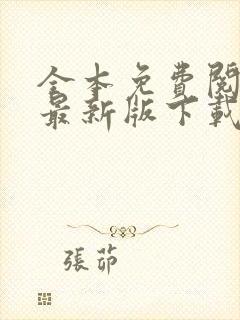 全本免費閱
最新版下載
張茆